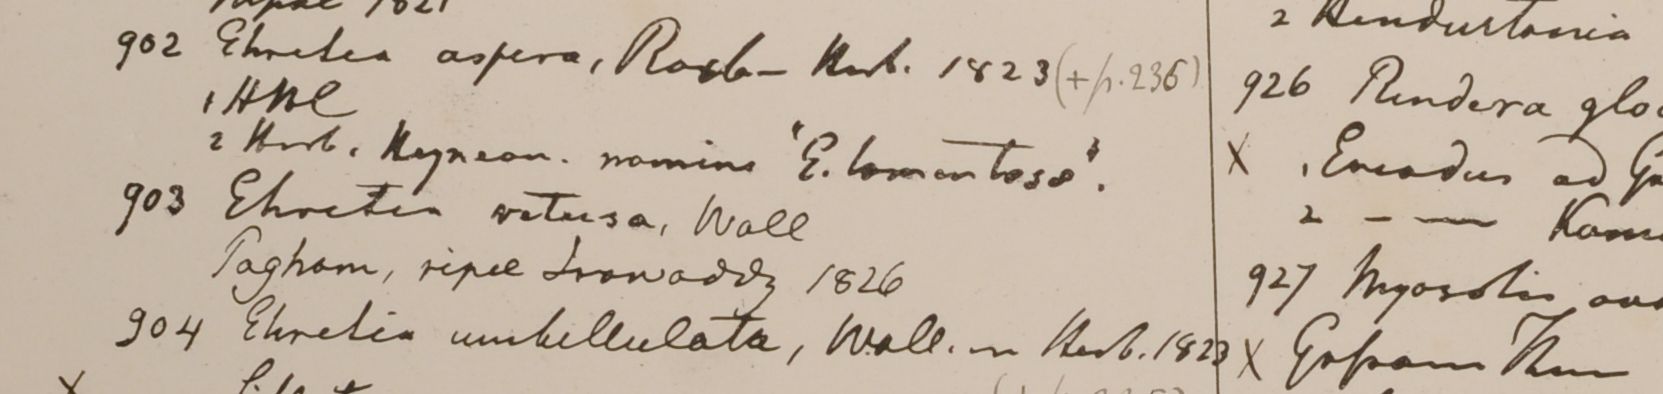 1821
902 Ehretia aspera, Roxb— Herb. 1823 (+p.236)
1 HBC
2 Herb. Heynean. nomine "E. tomentosa".
903 Ehretia retusa, Wall
Pagham, ripae Irawaddy 1826
904 Ehretia umbellulata, Wall. in Herb. 1823
2 Hindustania
926 Rindera glo
X 1 Emodus ad
2 - — Kam
927 Myosotis
X Gossam Than